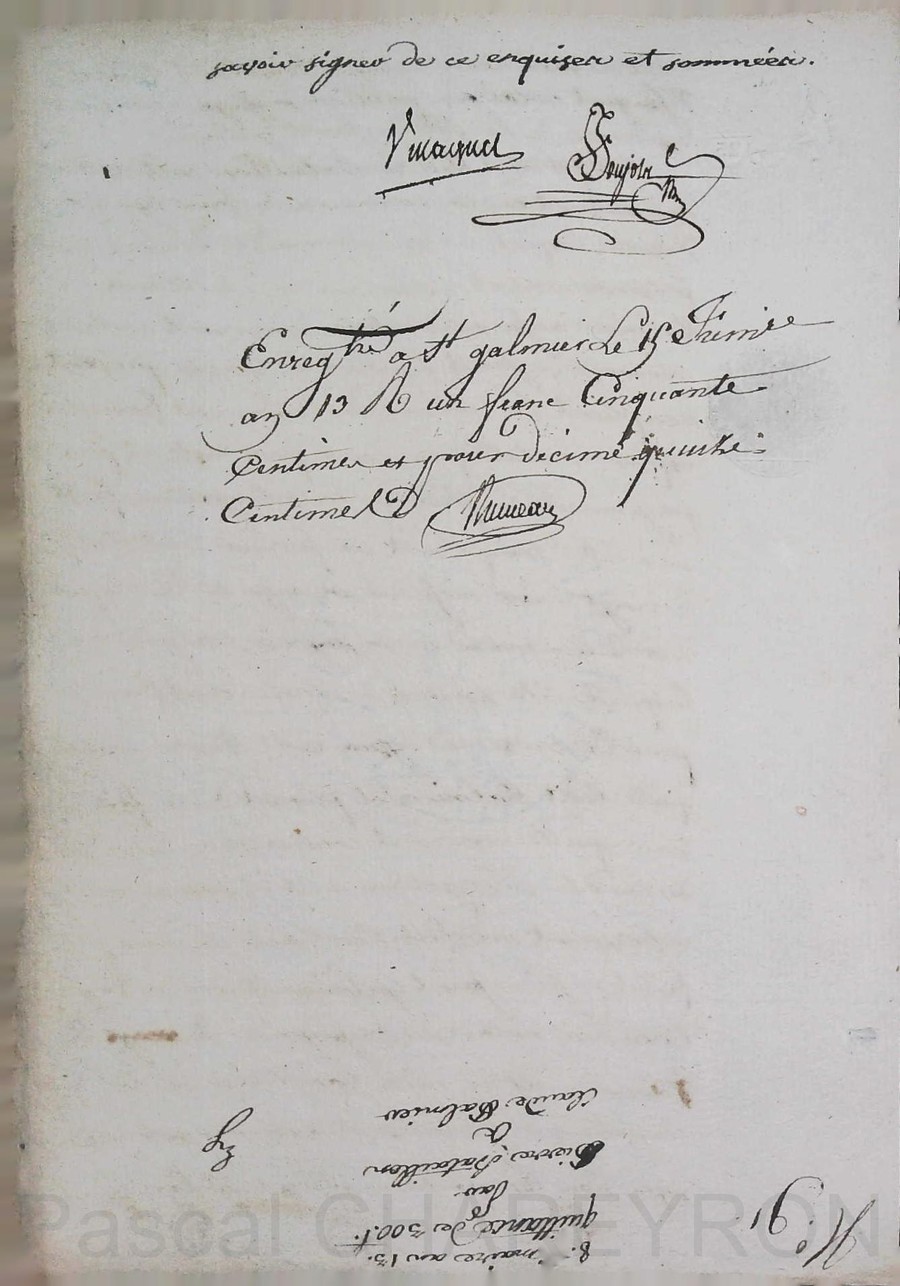 savoir signer de ce enquises et sommées.
Vmaquet Poujols
Enreg.tré à St galmier Le 15 frimre
an 13 R un franc Cinquante
Centimes et pour décime quinze
Centimes
8. maire an 13.
quittance de 300 f.
par
Pierre Bataillon
a
Claude Palmier
N.° 91
Pascal CHAPEYRON